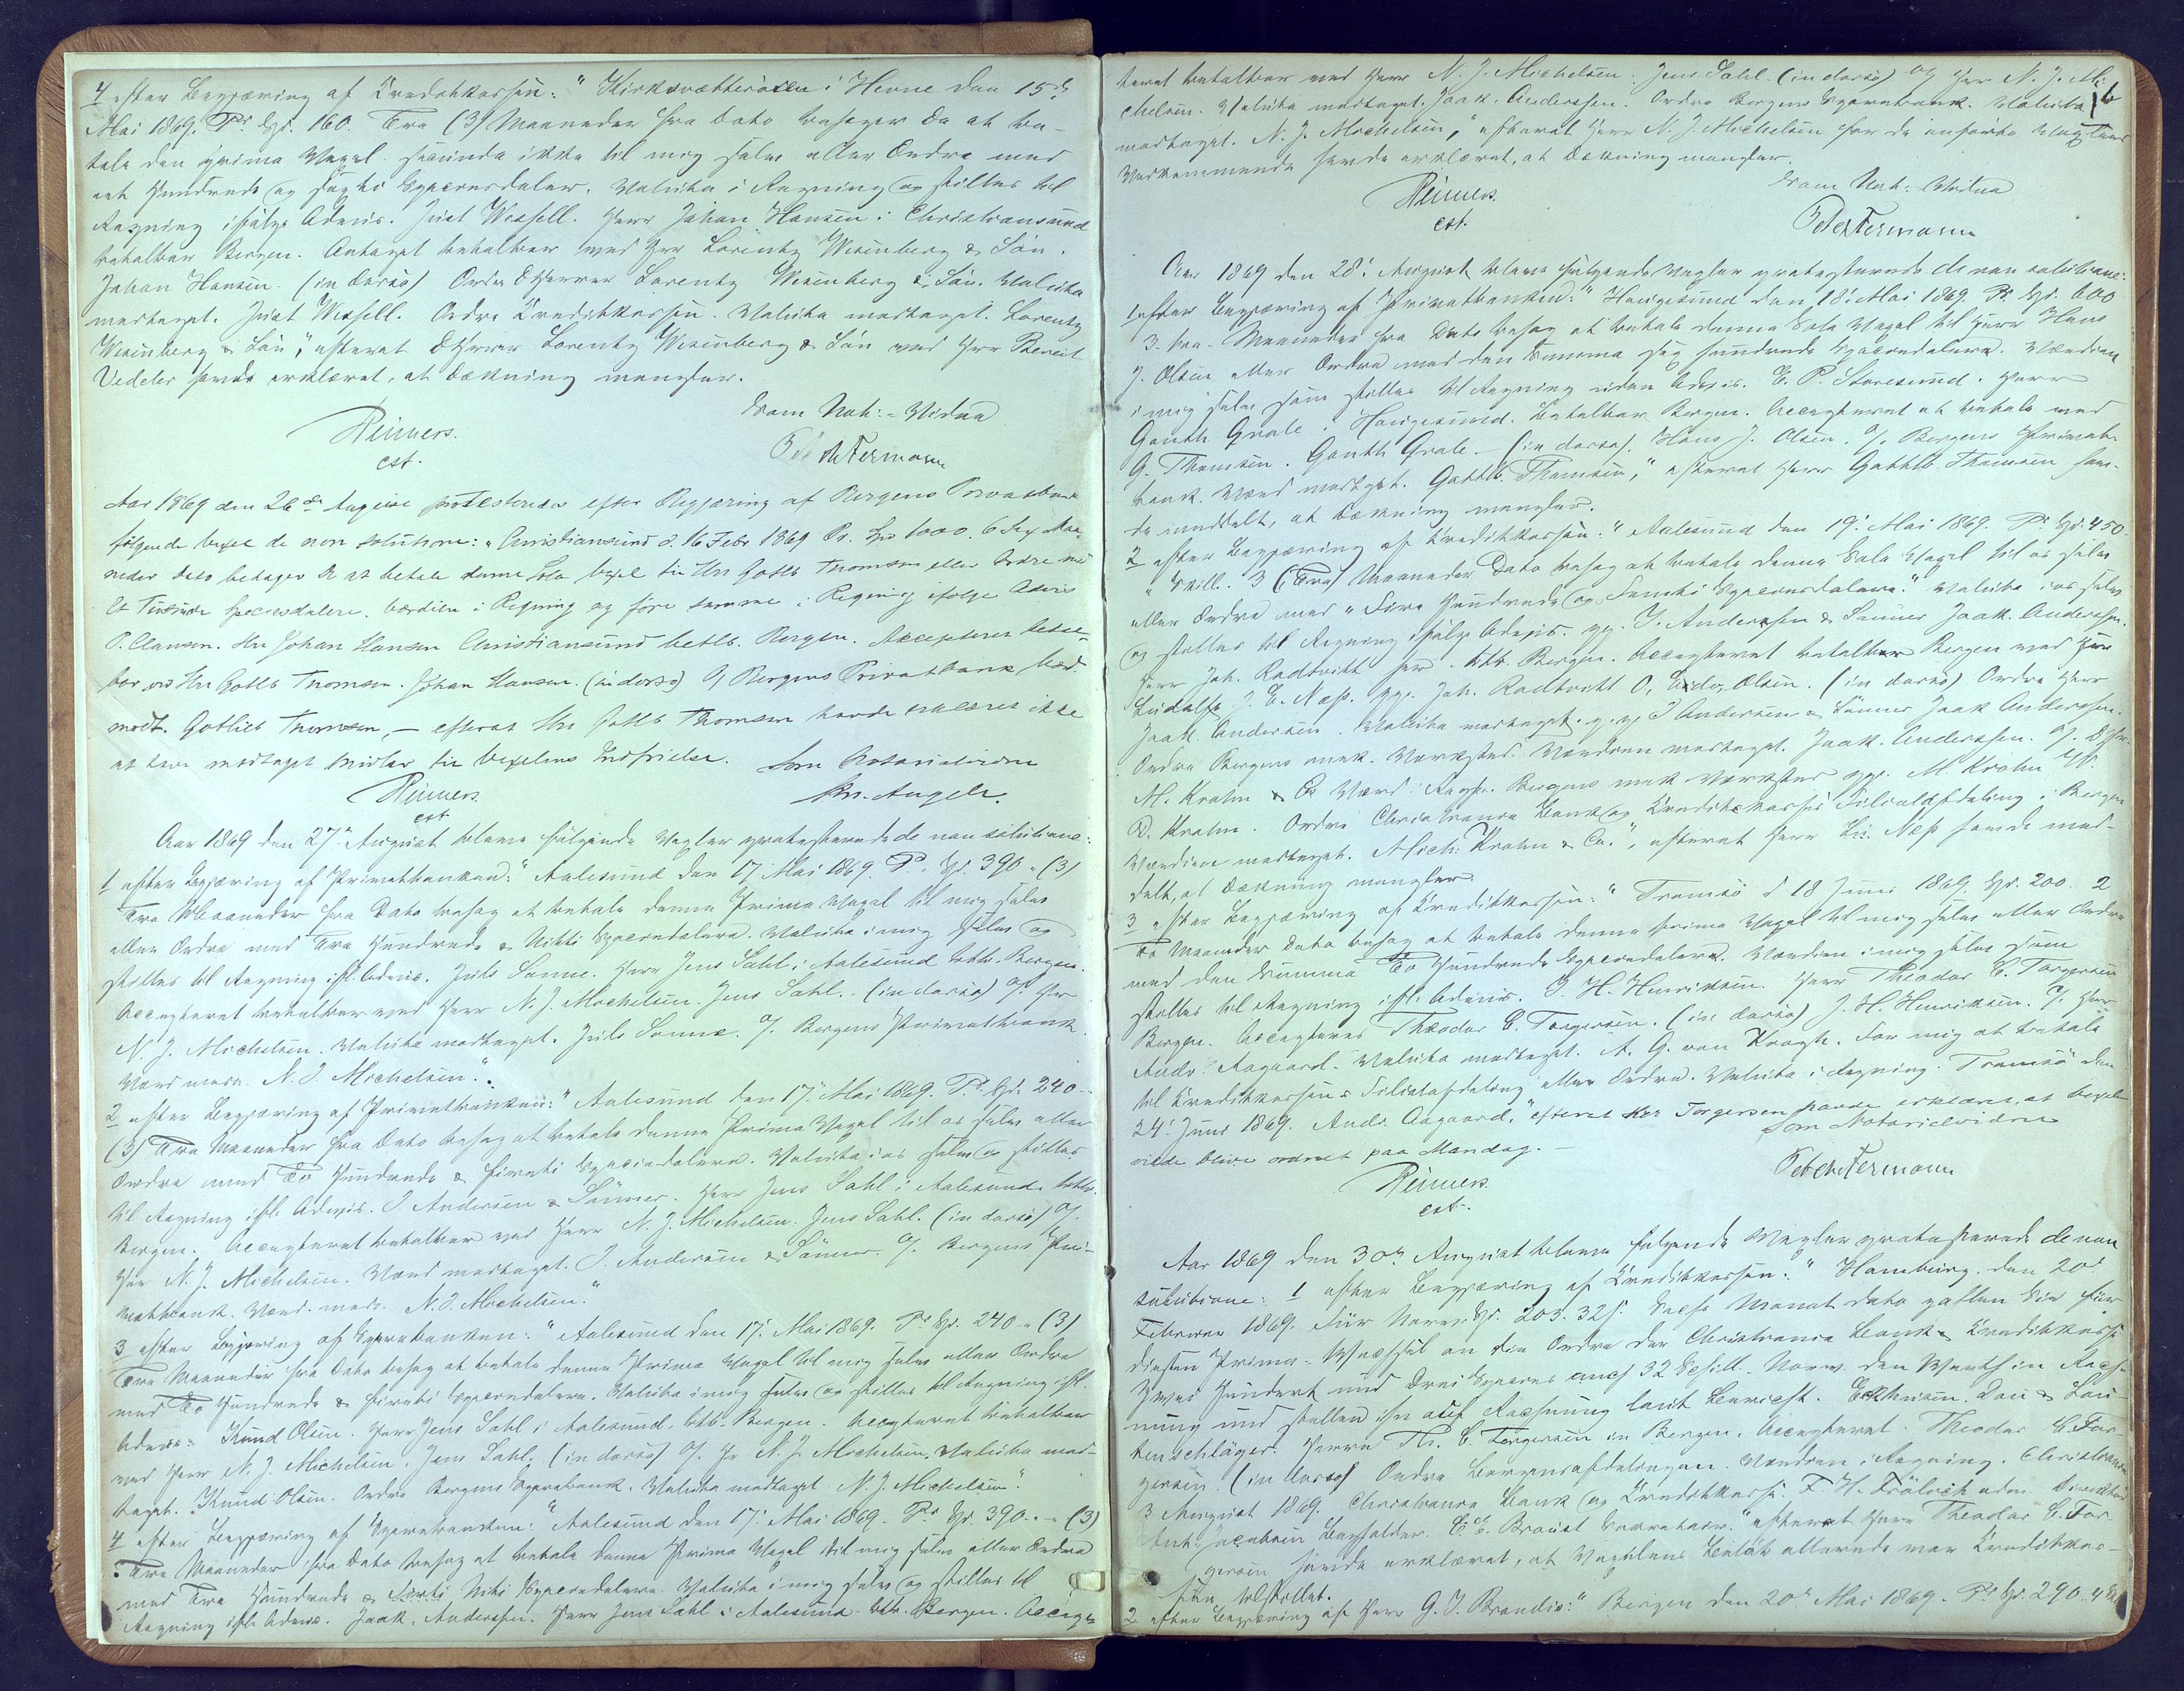 4 efter Begjæring af Creditkassen: "Kirksætterören i Hevne den 15de
Mai 1869. Pr Spd. 160. Tre (3) Maaneder fra dato behager De at be-
tale den prima Vexel secunda ikke til mig selv eller Ordre med
eet Hundrede og sexti Speciesdaler. Valuta i Regning og stilles til
Regning ifølge Advis. Just Wessell. Herr Johan Hansen i Christiansund
betalbar Bergen. Antaget betalbar ved Herr Lorentz Wesenberg & Sön.
Johan Hansen. (in dorso) Ordre DHerrer Lorentz Wesenberg & Sön. Valuta
modtaget. Just Wessell. Ordre Creditkassen. Valuta modtaget. Lorentz
Wesenberg & Sön", efterat DHerrer Lorentz Wesenberg & Sön ved Herr Berent
Vedeler havde erklæret, at Dækning mangler.
Som Not:-Vidne
Reimers.
est.
Petermann
Aar 1869 den 26de August protesteredes efter Begjæring af Bergens Privatbank
følgende vexel de non solutione: "Christiansund d. 16 Febr 1869 Pr. Spd 1000. 6 Sex Maa-
neder dato behager De at betale denne Sola vexel til Hrr Gottb Thomsen eller Ordre med
Et Tusinde Speciesdalere. Værdien i Regning og före samme i Regning ifölge Advis
P. Clausen. Hrr Johan Hansen Christiansund betlb. Bergen. Accepteres betal-
bar ved Hrr Gottlb Thomsen. Johan Hansen. (in dorso) O/ Bergens Privatbank, Værd.
modt. Gotlieb Thomsen, — efterat Hrr Gottlb Thomsen havde erklæret ikke
at have modtaget Midler til Vexelens Indfrielse. Som Notarialvidne
Reimers.
est
Chr. Angell.
Aar 1869 den 27de August bleve følgende Vexler protesterede de non solutione:
1 efter Begjæring af Privatbanken: "Aalesund den 17 Mai 1869. Pr. Spd. 390 " (3)
Tre Maaneder fra Dato behag at betale denne Prima Vexel til mig selv
eller Ordre med Tre Hundrede & Nitti Speciesdalere. Valuta i mig selv og
stilles til Regning ifl. Advis. Juls Sonne. Herr Jens Sahl i Aalesund btlb. Bergen.
Accepteret betalbar ved Herr N. J. Michelsen. Jens Sahl. (in dorso) O/ Hr
N. J. Michelsen. Valuta modtaget. Juls Sonne. O/ Bergens Privatbank.
Værd modt. N. J. Michelsen".
2 efter Begjæring af Privatbanken: "Aalesund den 17 Mai 1869. Pr Spd. 240 -
(3) Tre Maaneder fra Dato behag at betale denne Prima Vexel til os selv eller
Ordre med To Hundrede & firuti Speciesdalere. Valuta i os selv og stilles
til Regning ifl. Advis. J. Andersen & Sönner. Herr Jens Sahl i Aalesund. btlb.
Bergen. Accepteret betalbar ved Herr N. J. Michelsen. Jens Sahl. (in dorso) O/
Herr N. J. Michelsen. Værd modtaget. J. Andersen & Sönner. O/ Bergens Pri-
vatbank. Værd. modt. N. J. Michelsen."
3 efter Begjæring af Sparebanken: "Aalesund den 17 Mai 1869. Pr Spd. 240 " (3)
Tre Maaneder fra Dato behag at betale denne Prima Vexel til mig selv eller Ordre
med To Hundrede & firuti Speciesdalere. Valuta i mig selv og stilles til Regning ifl.
Advis. Knud Olsen. Herr Jens Sahl i Aalesund. btlb. Bergen. Accepteret betalbar
ved Herr N. J. Michelsen. Jens Sahl. (in dorso) O/ Hr N. J. Michelsen. Valuta mod-
taget. Knud Olsen. Ordre Bergens Sparebank. Valuta modtaget N. J. Michelsen".
4 efter Begjæring af Sparebanken: "Aalesund den 17 Mai 1869. Pr Spd. 390 - " (3)
Tre Maaneder fra Dato behag at betale denne Prima Vexel til mig selv eller Ordre
med Tre Hundrede & Nitti Speciesdalere. Valuta i mig selv og stilles til
Regning ifl. Advis. Jaak. Anderssen. Herr Jens Sahl i Aalesund. btlb. Bergen. Accep-
6
teret betalbar ved Herr N. J. Michelsen. Jens Sahl. (in dorso) O/ Herr N. J. Mi-
chelsen. Valuta modtaget. Jaak. Anderssen. Ordre Bergens Sparebank. Valuta
modtaget. N. J. Michelsen", efterat Herr N. J. Michelsen for de anførte Vexlers
Vedkommende havde erklæret, at Dækning mangler.
Som Not: Vidne
Reimers.
est.
Petermann
Aar 1869 den 28' August bleve følgende Vexler protesterede de non solutione:
1 efter Begjæring af Privatbanken: "Haugesund den 18' Mai 1869. Pr Spd. 600
3 - tre - Maaneder fra Dato behag at betale denne Sola Vexel til Herr Hans
J. Olsen eller Ordre med den Summa Sex hundrede Speciesdalere. Værdien
i mig selv som stilles til Regning uden Advis. E. P. Storesund. Herr
Gauth Grale. Haugesund. Betalbar Bergen. Accepteret at betale ved
G. Thomsen. Gauth Grale - (in dorso). Hans J. Olsen. O/ Bergens Privat-
bank. Værd modtaget. Gottlb. Thomsen," efterat Herr Gottlb Thomsen hav-
de meddelt, at Dækning mangler.
2 efter Begjæring af Creditkassen: "Aalesund den 19' Mai 1869. Pr Spd. 450
" Skill. 3 (Tre) Maaneder Dato behag at betale denne Sola Vexel til os selv
eller Ordre med "Fire Hundrede og Femti Speciesdalere." Valuta i os selv
og stilles til Regning ifølge Advis. pp. J. Anderssen & Sönner Jaak. Anderssen.
Herr Joh. Radtvitt her. btlb. Bergen. Accepteret betalbar Bergen ved Herr
Ludolf J. E. Næss. pp. Joh. Radtvitt O. Olsen. (in dorso) Ordre Herr
Jaak Anderssen. Valuta modtaget. p.p. J Andersen & Sönner Jaak Anderssen.
Ordre Bergens mek. Værksted. Værdien modtaget. Jaak. Anderssen. O/ DHer.
M. Krohn & Co Værd i Regn. Bergens mek Værksted ppr. M. Krohn
D. Krohn. Ordre Christiania Bank og Creditkasses Filialafdeling i Bergen
Værdien modtaget. Mich. Krohn & Co.", efterat Herr Lu. Næss havde med-
delt, at Dækning mangler.
3 efter Begjæring af Creditkassen: "Tromsö d 18 Juni 1869. Spd. 200. 2
To Maaneder Dato behag at betale denne prima Vexel til mig selv eller Ordre
med den Summa To Hundrede Speciesdalere. Værdien i mig selv som
stilles til Regning ifl. Advis. J. H. Henriksen. Herr Theodor C. Torgersen
Bergen. Accepteres Theodor C. Torgersen. (in dorso) J. H. Henriksen. O/ Herr
Andr. Aagaard. Valuta modtaget. A. G. von Krogh. For mig at betale
til Creditkassens Filialafdeling eller Ordre. Valuta i Regning. Tromsö den
24' Juni 1869. Andr. Aagaard," efterat Herr Torgersen havde erklæret, at Vexelen
vilde blive ordnet paa Mandag. —
Som Notarialvidne
Reimers.
est.
Petermann
Aar 1869 den 30te August bleve følgende Vexler protesterede de non
solutione: 1 efter Begjæring af Creditkassen: "Hamburg. den 20'
Februar 1869. Für Norw. Sp. 203. 32 f. Sechs Monat dato zahlen Sie für
diesen Prima-Wechsel an die Ordre der Christiania Bank & Creditkasse
Zwei Hundert und Drei Species auch 32 Schill. Norw. den Werth in Rech-
nung und stellen ihn auf Rechnung laut Bericht. Eckhusen. Dan & Lau-
tenschläger. Herrn Th. C. Torgersen in Bergen. Accepteret. Theodor C. Tor-
gersen. (in dorso) Ordre Bergensafdelingen. Værdien i Regning. Christiania
3 August 1869. Christiania Bank og Creditkasse. F. H. Frölich adm. Direktör
Bogholder. C. E. Secretair." efterat Herr Theodor C. Tor-
gersen havde erklæret, at Vexelens Beløb allerede var Creditkas-
sen tilstillet.
2 efter Begjæring af Herr G. J. Brandis: "Bergen den 20de Mai 1869. Pr Spd. 290. 4